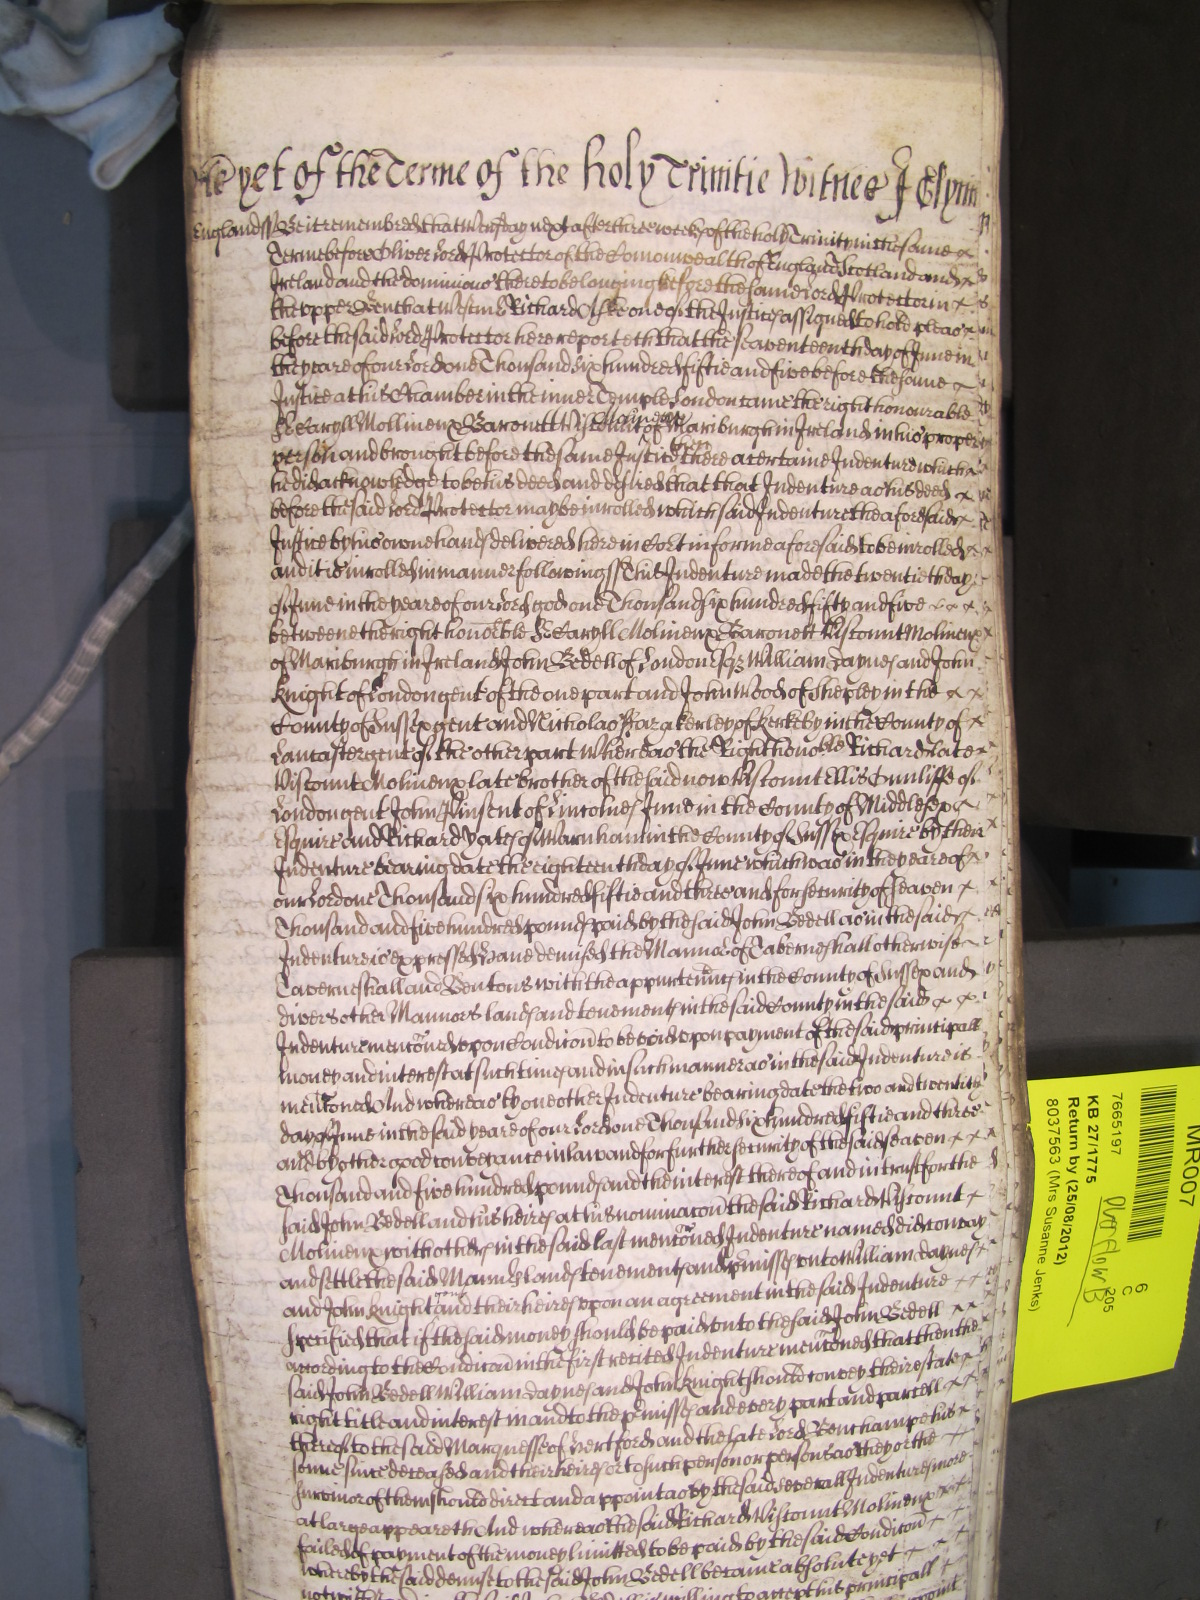 yet of the Terme of the holy Trinitie Witnes J Glynn
England ss Be it remembred that Munday next after three weekes of the holy Trinity in the same
Terme before Oliver Lord Protector of the Comonwealth of England Scotland and
Ireland and the dominions thereto belonging before the same Lord Protector in
the upper Bench at Westm Richard Aske one of the Justices assigned to hold pleas
before the said Lord Protector here reporteth that the seaventeenth day of June in
the yeare of our Lord one Thousand six hundred fiftie and five before the same
Justice at his Chamber in the inner Temple London came the right honourable
Sr Caryll Mollineux Baronett Viscount Molineux of Mariburgh in Ireland in his proper
person and brought before the same Justice then there a certaine Indenture which
he did acknowledge to be his deed and desired that that Indenture as his deed
before the said Lord Protector may be inrolled which said Indenture the aforesaid
Justice by his owne hands delivered here in Cort in forme aforesaid to be inrolled
and it is inrolled in manner following ss This Indenture made the twentieth day
of June in the yeare of our Lord god one Thousand six hundred fifty and five
betweene the right honoble Sr Caryll Molineux Baronett Viscount Molineux
of Mariburgh in Ireland John Bedell of London Esqr William Jaynes and John
Knight of London gent of the one part and John Wood of Shepley in the
County of Sussex gent and Nicholas Fazakerley of Kerkeby in the County of
Lancaster gent of the other part Whereas the Right honoble Richard late
Viscount Molineux late brother of the said now Viscount Ellis Cunliffe of
London gent John Vinsent of Lincolnes Inne in the County of Middlesex
Esquire and Richard Yates of Warnham in the County of Sussex Esquire by then
Indenture bearing date the eighteenth day of June which was in the yeare of
our Lord one Thousand six hundred fiftie and three and for security of seaven
Thousand and five hundred pounds paid by the said John Bedell as in the said
Indenture is expressed Have demised the Mannor of Taberneshall otherwise
Taverneshall and Bentons with the appurtennces in the County of Sussex and
divers other Mannors lands and tenements in the said County in the said
Indenture mentoned upon Condicon to be void upon payment of the said principall
money and interest at such times and in such manner as in the said Indenture is
mentoned And whereas by one other Indenture bearing date the two and twentith
day of June in the said yeare of our Lord one Thousand six hundred fiftie and three
and by other good conveiance in law and for further security of the said seaven
Thousand and five hundred pounds and the interest thereof and in trust for the
said John Bedell and his heires at his nominacon the said Richard Viscount
Molineux with others in the said last mentoned Indenture named did convey
and settle the said Mannors lands tenements and premisses unto William Jaynes
and John Knight gent and their heires upon an agreement in the said Indenture
specified that if the said money should be paid unto the said John Bedell
according to the Condicon in the first recited Indenture mentoned that then the
said John Bedell William Jaynes and John Knight should convey their estate
right title and interest in and to the premisses and every part and parcell
thereof to the said Marquesse of Hertford and the late Lord Beuchampe his
sonne since deceased and their heires or to such person or persons as they or the
survivor of them should direct and appoint as by the said severall Indentures more
at large appeareth And whereas the said Richard Viscount Molineux
failed of payment of the money limitted to be paid by the said Condicon
whereby the said demise to the said John Bedell became absolute yet
willing to accept his principall
MR007
7665197
KB 27/1775
Return by (25/08/2012)
8037563 (Mrs Susanne Jenks)
overflow B
6
C
205